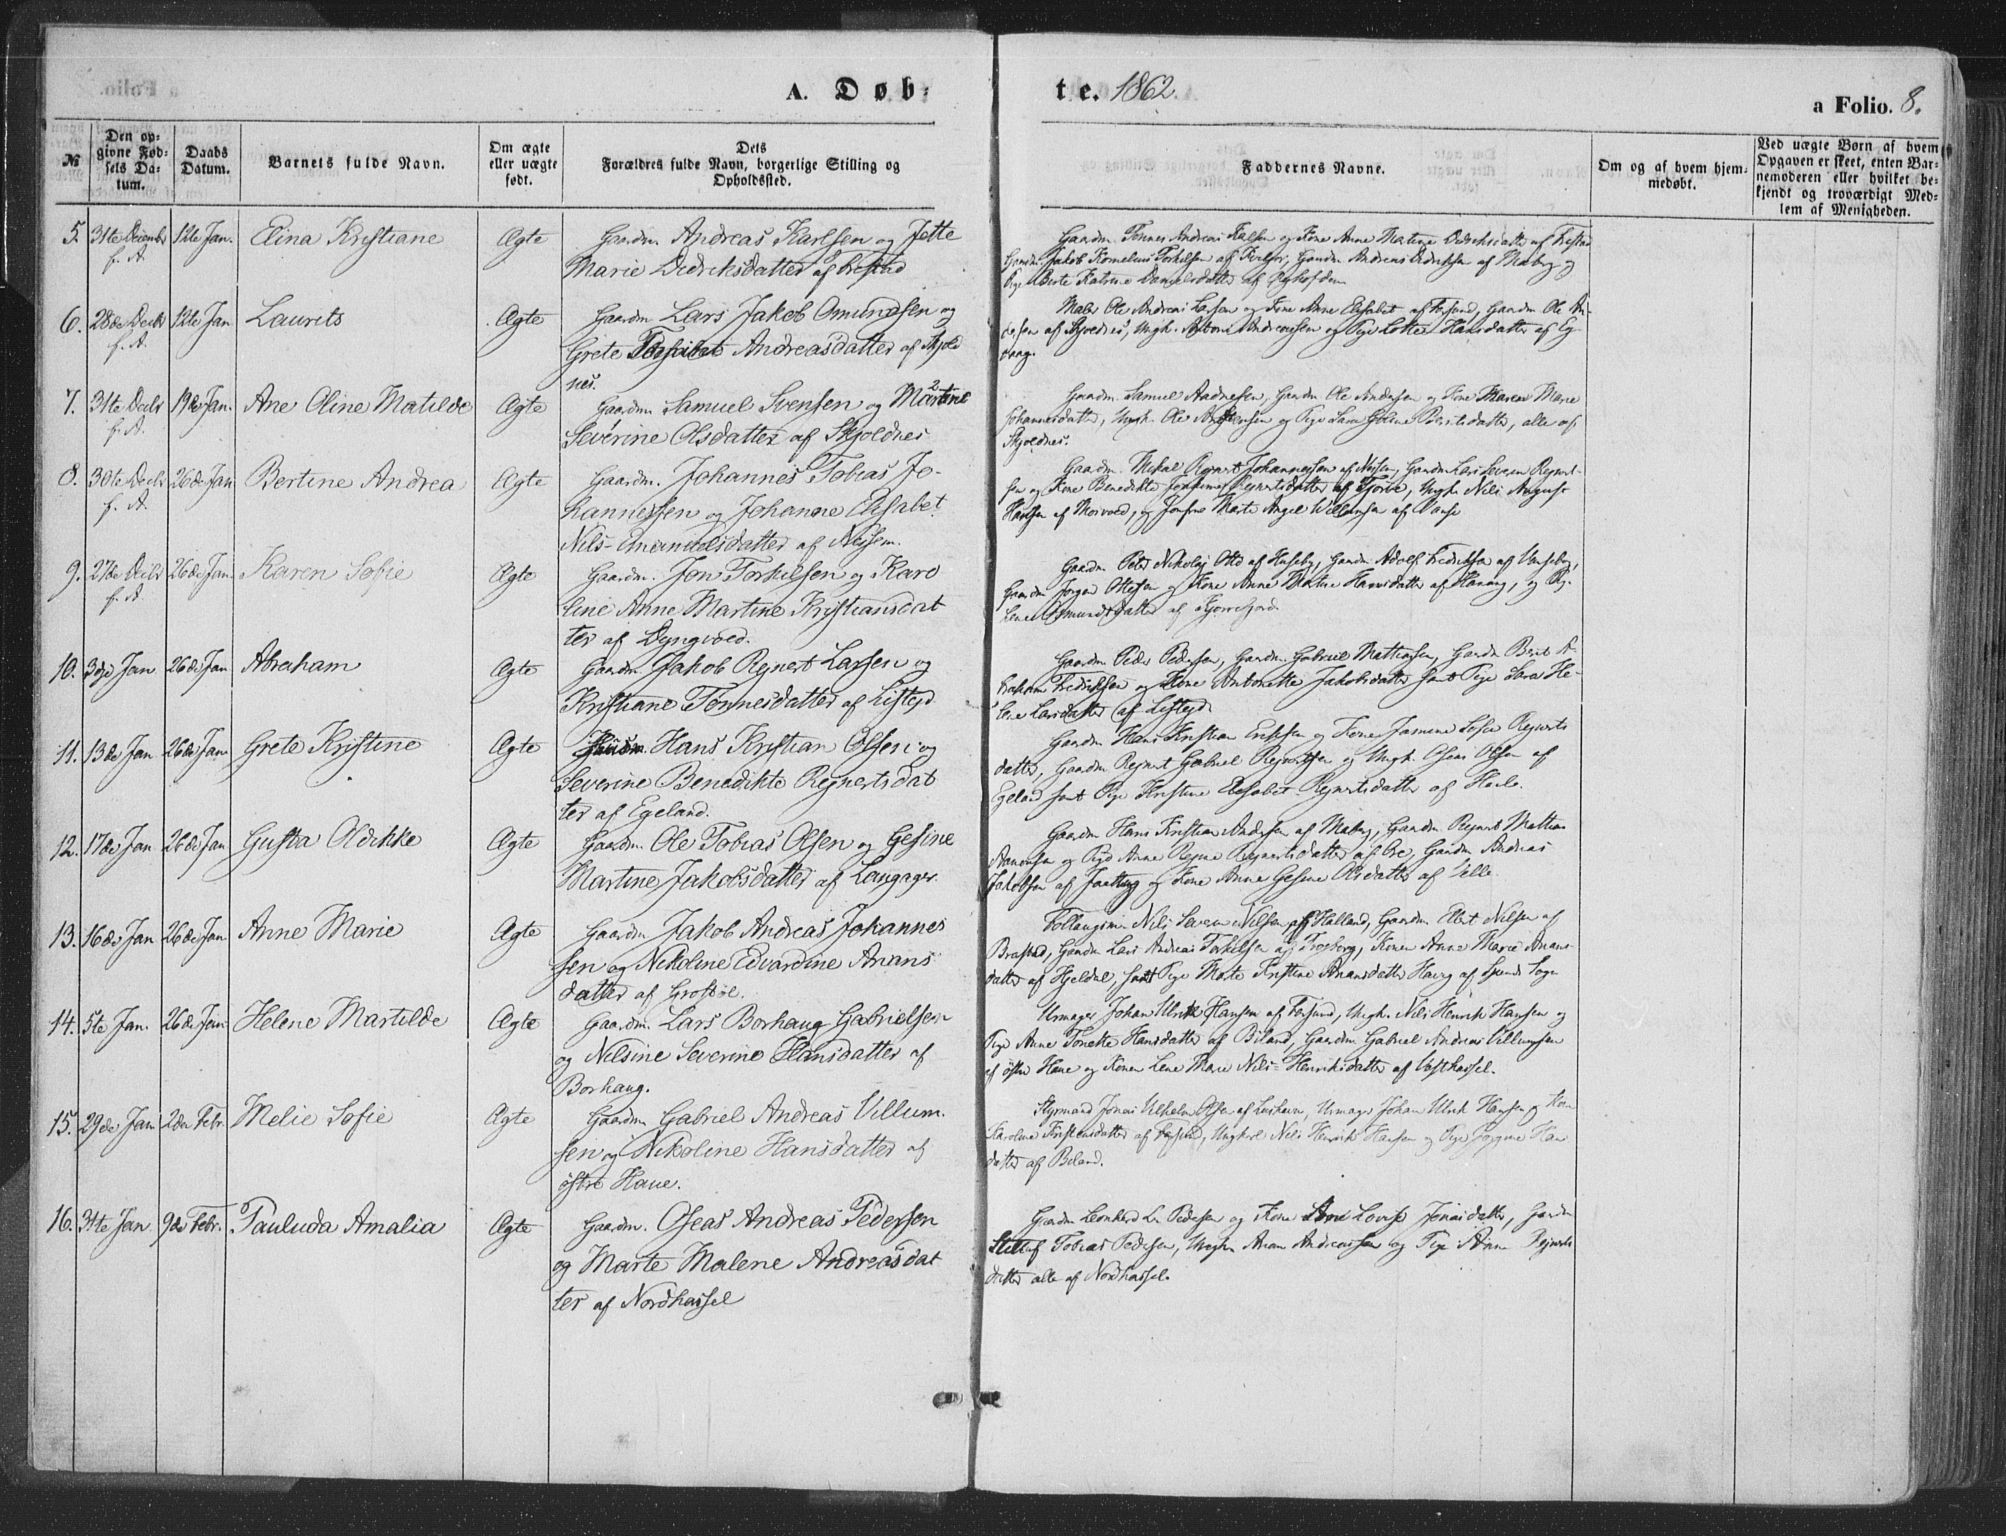 A. Døb-
te. 1862.
a Folio. 8.
№
Den op-
givne Fød-
sels Da-
tum.
Daabs
Datum.
Barnets fulde Navn.
Om ægte
eller uægte
født.
Dets
Forældres fulde Navn, borgerlige Stilling og
Opholdssted.
Faddernes Navne.
Om og af hvem hjem-
medøbt.
Ved uægte Børn af hvem
Opgaven er skeet, enten Bar-
nemoderen eller hvilket be-
kjendt og troværdigt Med-
lem af Menigheden.
5. 31te Decembr f. A. 12te Jan. Elina Kristiane Ægte Gaardm. Andreas Karlsen og Jette
Marie Didriksdatter af
Gaardm. Tønnes Andreas og Kone Anne Martine Didriksdatter af
Gaardm. Jakob Kornelius Torkilsen af Gaardm. Andreas Didriksen af og
Pige Berte Katrine Danielsdatter af
6. 28de Decbr f. A. 12te Jan Laurits Ægte Gaardm. Lars Jakob Omundsen og
Grete Andreasdatter af Skjold
nes.
Maler Ole Andreas Larsen og Kone Anne Elisabet af Farsund, Gaardm Ole An-
dersen af Skjoldnes, Ungk. Anton Andreassen og Pige Lotte Hansdatter af Eg-
vaag.
7. 31te Decbr f. A. 19de Jan. Ane Oline Matilde Ægte Gaardm. Samuel Svensen og Martine
Severine Olsdatter af Skjoldnes
Gaardm. Samuel Aadnesen, Gaardm Ole Andersen og Kone Maren Marie
Johannesdatter, Ungk. Ole Andersen og Pige Lava alle af
Skjoldnes.
8. 30te Decbr f. A. 26de Jan Bertine Andrea Ægte Gaardm. Johannes Tobias Jo-
hannessen og Johanne Elisabet
Nils-Emanuelsdatter af Neisem.
Gaardm. Mikal Rejnert Johannessen af Neisem, Gaardm Lars Severin Rejnert-
sen og Kone Benedikte Rejnertsdatter af Tjørve, Ungk. Nils August
Hansen af og Jomfru Marte Angel Willumsen af Vanse
9. 27de Decbr f. A. 26de Jan. Karen Sofie Ægte Gaardm. Jon Torkilsen og Karo
line Anne Martine Kristiansdat
ter af Dyngvoed.
Gaardm Peter Nikolaj Otto af Huseby, Gaardm. Adolf Fredriksen af
Gaardm Jørgen Ottesen og Kone Anne Martine Hansdatter af og Pige
Lene datter af
10. 3die Jan 26de Jan Abraham Ægte Gaardm. Jakob Rejnert Larsen og
Kristiane Tønnesdatter af Listejd
Gaardm Peder Pedersen, Gaardm. Gabriel Mattiassen, Gaardm Berit A-
braham Fredriksen og Kone Antonette Jakobsdatter samt Pige Sara He-
lene Larsdatter af Listejd.
11. 13de Jan 26de Jan Grete Kristine Ægte Hans Kristian Olsen og
Severine Benedikte Rejnertsdat
ter af Egeland.
Gaardm Hans Kristian Eriksen og Kone Jasmine Sofie Rejnerts
datter, Gaardm Rejnert Gabriel Rejnertsen og Ungk. Oseas Olsen af
Egeland samt Pige Kristine Elisabet Rejnertsdatter af
12. 17de Jan 26de Jan Gusta Oldikke Ægte Gaardm. Ole Tobias Olsen og Gesine
Martine Jakobsdatter af Langager.
Gaardm Hans Kristian Andersen af Gaardm. Rejnert Mattias
Aanensen og Pige Anne Rejnertsdatter af Ore, Gaardm Andreas
Jakobsen af og Kone Anne Gesine Olsdatter af Velle
13. 16de Jan 26de Jan Anne Marie Ægte Gaardm Jakob Andreas Johannes
sen og Nikoline Edvardine Anans
datter af Grostøl.
Nils Severin Nilsen af Halland, Gaardm. Elert Nilsen af
Brastad, Gaardm. Lars Andreas Torkilsen af Konen Anne Marie Anans-
datter af Hjeldal, samt Pige Marte Kristine Anansdatter af Spinds Sogn
14. 5te Jan. 26de Jan Helene Martilde Ægte Gaardm. Lars Borhaug Gabrielsen
og Nilsine Severine Hansdatter af
Borhaug.
Urmager Johan Ulrik Hansen af Farsund, Ungk. Nils Henrik Hansen og
Pige Anne Tonette Hansdatter af Biland, Gaardm Gabriel Andreas Villumsen
af østre Haue og Konen Lene Marie Nils-Henriksdatter af Vesthassel.
15. 29de Jan 2den Febr. Melie Sofie Ægte Gaardm. Gabriel Andreas Villum-
sen og Nikoline Hansdatter af
østre Haue.
Styrmand Jonas Vilhelm Olsen af Loshavn, Urmager Johan Ulrik Hansen og Kone
Karoline Kristensdatter af Farsund, Ungkrl Nils Henrik Hansen og Pige Han
datter af Biland.
16. 31te Jan 9de Febr. Pauluda Amalia Ægte Gaardm. Oseas Andreas Pedersen
og Marte Malene Andreasdat
ter af Nordhassel
Gaardm Leonhard Pedersen og Kone Lovise Jonasdatter, Gaardm
Tobias Pedersen, Ungk. Anan Andreassen og Pige Anne Rejnerts
datter alle af Nordhassel.